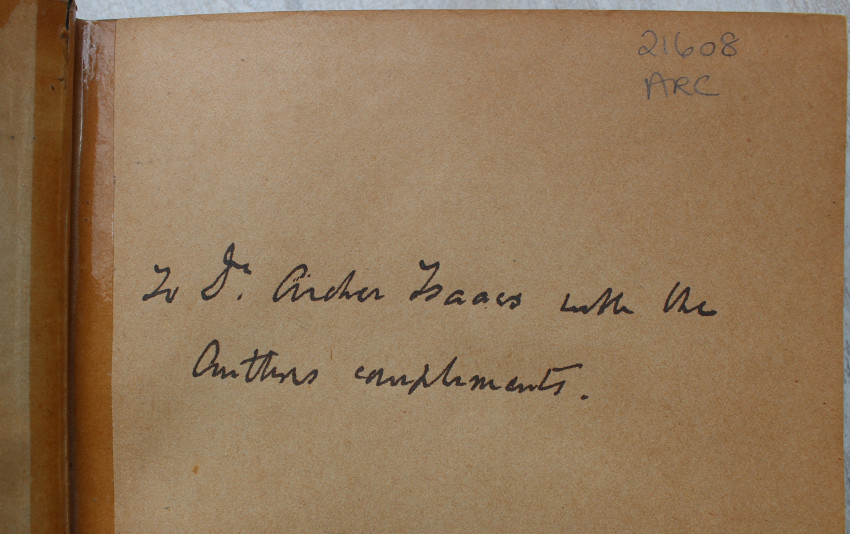 21608
ARC
To Dr. Archer Isaacs with the
Authors compliments.